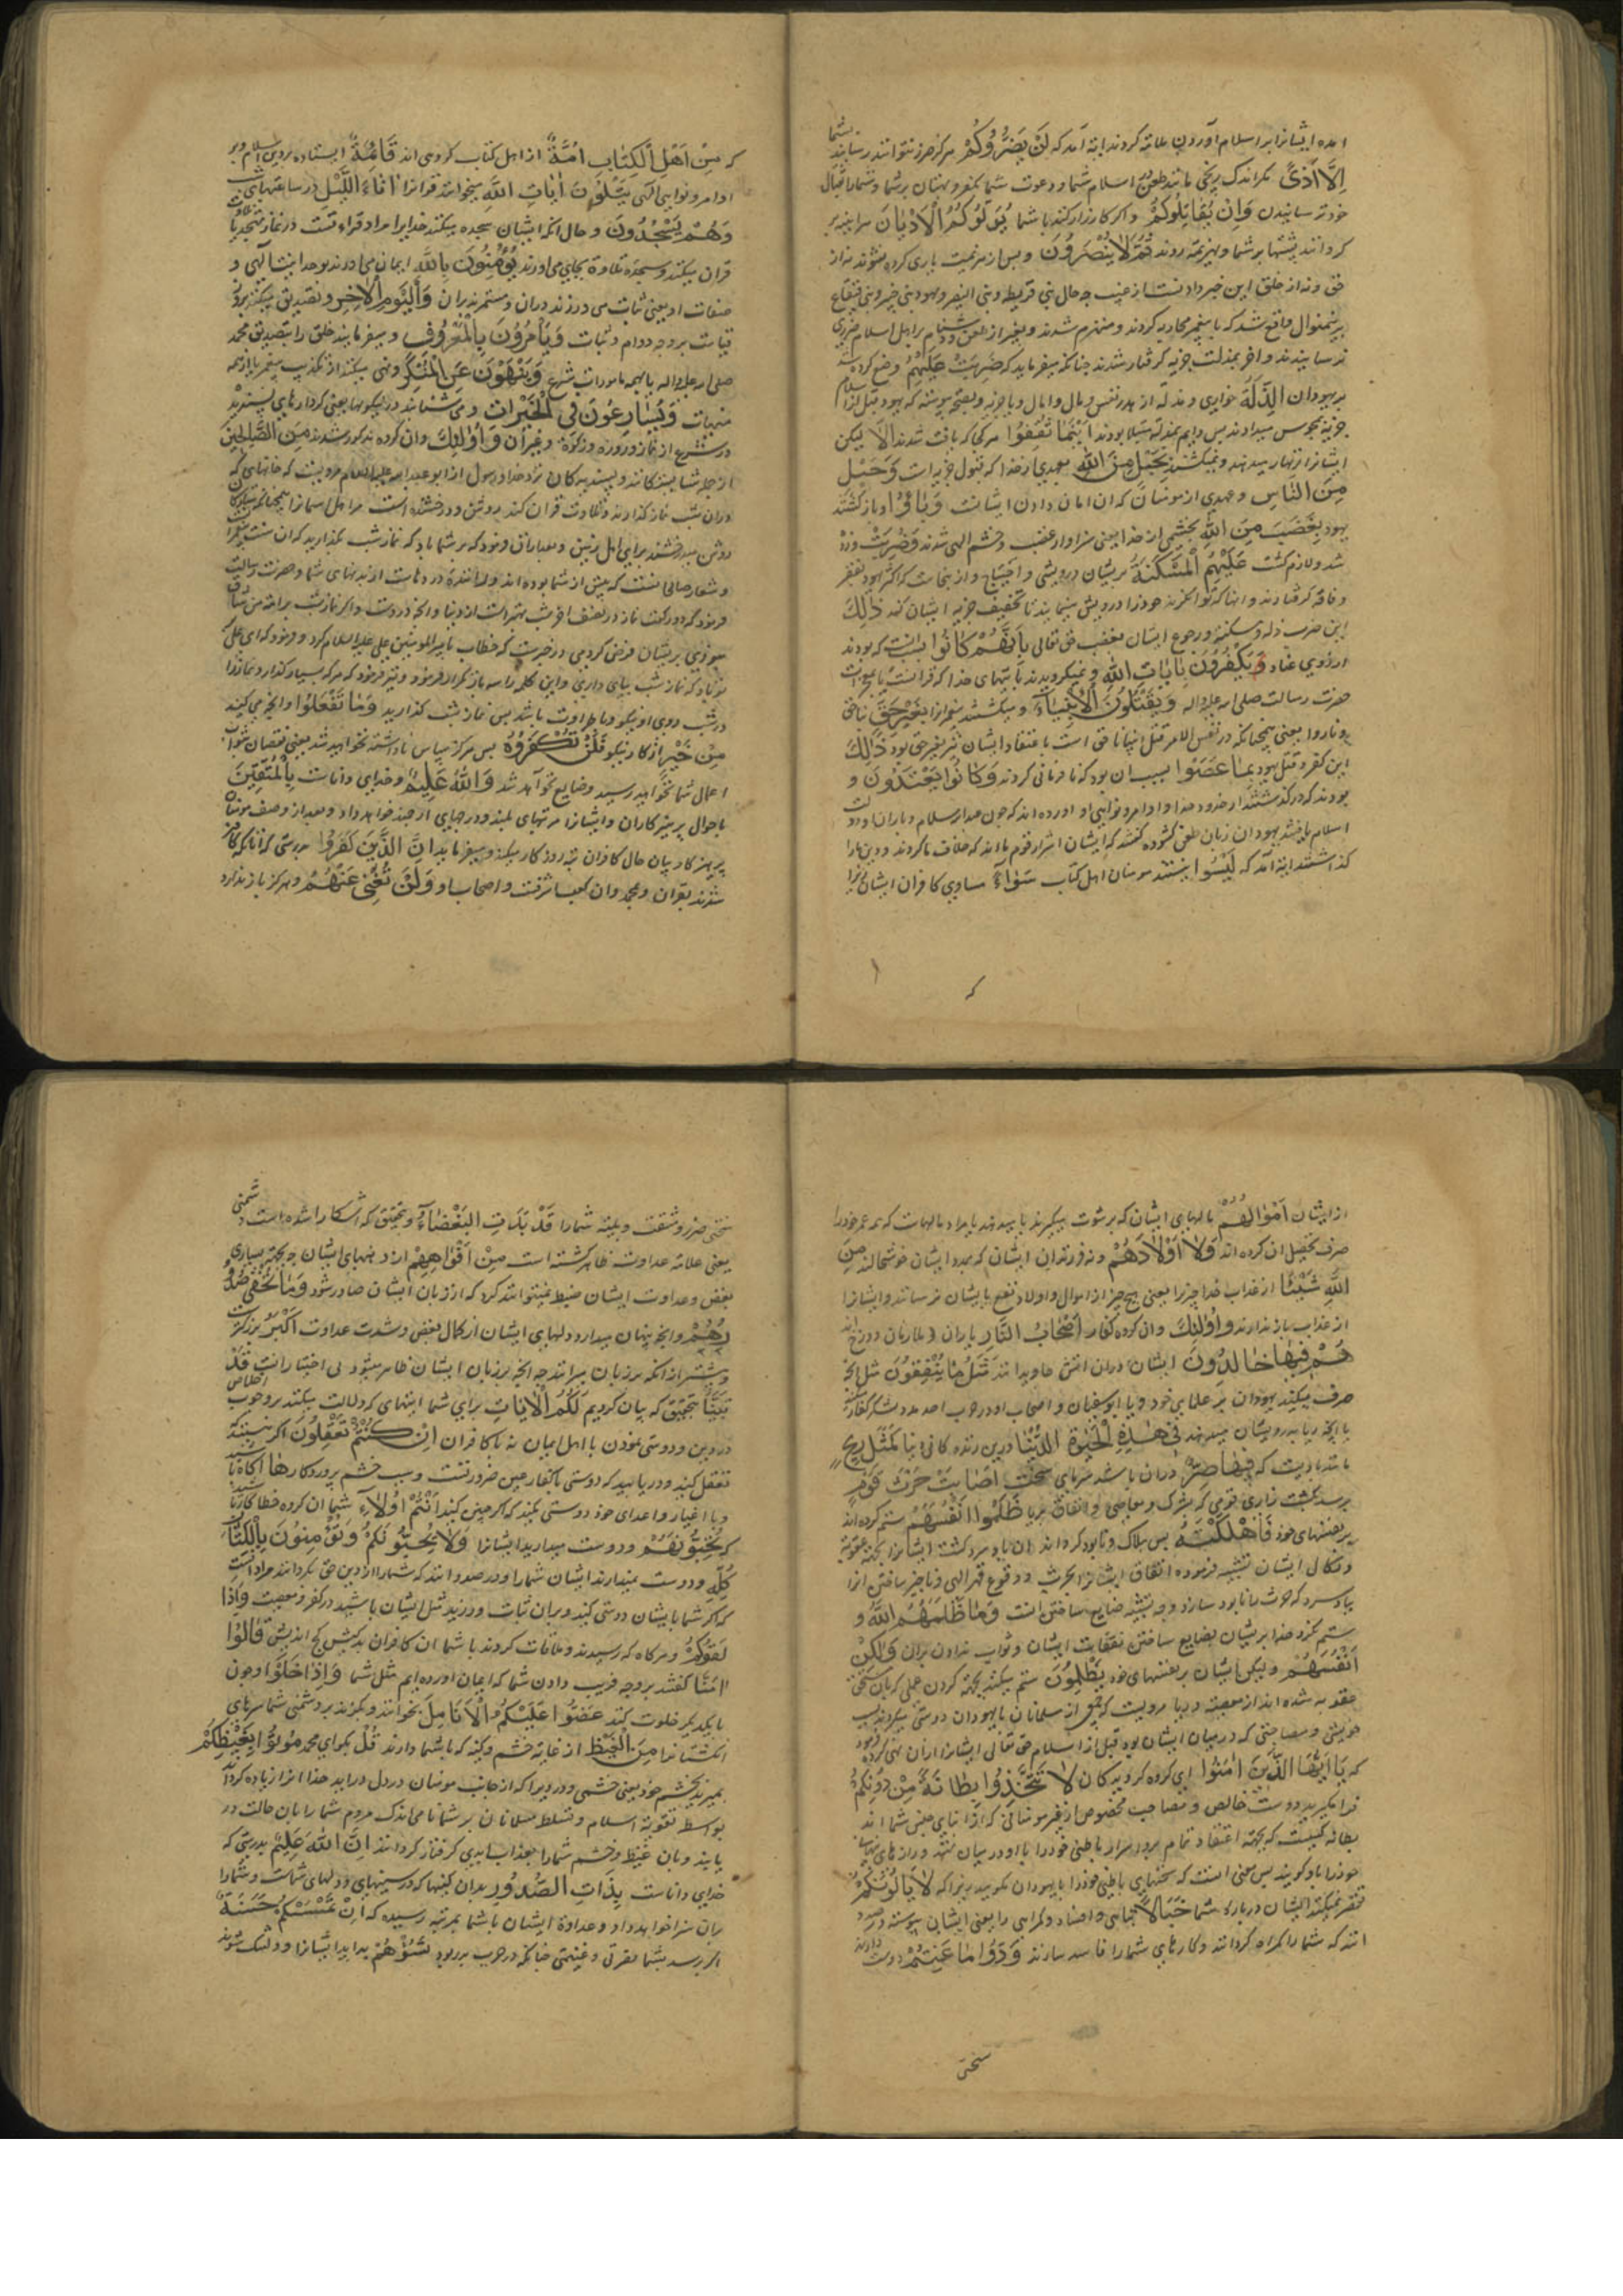 امده ایشانرا بر اسلام آوردن ملامة کردند ایة آمد که لَنْ یَضُرُّوکُمْ هرگز ضرر نتوانند رسانید بشما
اِلَّا اَذیً مکر اندک رنجی مانند طعن اسلام شما و دعوت شما بکفر و بهتان بر شما و شما را قتال
خود ترسانیدن وَاِنْ یُقَاتِلُوکُمْ و اکر کارزار کنند با شما یُوَلُّوکُمُ الْاَدْبَارَ
کردانند پشتها بر شما و بهزیمة روند ثُمَّ لَا یُنْصَرُونَ و پس از هزیمت یاری کرده نشوند نه از
حق و نه از خلق این خبر دادنست از غیب چه حال بنی قریظه و بنی النضیر و یهود بنی خیبر و بنی قینقاع
برینمنوال واقع شد که با پیغمبر محاربه کردند و منهزم شدند و بغیر از طعن و دشنام بر اهل اسلام ضرری
نرسانیدند و آخر بمذلت جزیه کرفتار شدند چنانکه میفرماید که ضُرِبَتْ عَلَیْهِمُ وضع کرده شد
بر یهودان الذِّلَّةُ خواری و مذلة از هدر نفس و مال و اهال و یا جزیه
جزیه بمجوس میدادند پس دایم بمذلة مبتلا بودند اَیْنَمَا ثُقِفُوا هر کجا که یافت شدند اِلَّا لیکن
ایشانرا زنهار میدهند و نمیکشند بِحَبْلٍ مِنَ اللهِ بعهدی از خدا که قبول جزیه است وَحَبْلٍ
مِنَ النَّاسِ و عهدی از مومنان که ان امان دادن ایشانست وَبَاؤُا و باز کشتند
یهود بِغَضَبٍ مِنَ اللهِ بخشمی از خدا یعنی سزاوار غضب و خشم الهی شدند وَضُرِبَتْ و زده
شد و لازم کشت عَلَیْهِمُ الْمَسْکَنَةُ بر یشان درویشی و احتیاج و از ینجاست که اکثر یهود بفقر
و فاقه کرفتارند و انها که توانکرند خود را درویش مینمایند تا تخفیف جزیه ایشان کند ذٰلِکَ
این ضرب ذله و مسکنة و رجوع ایشان بغضب حق تعالی بِاَنَّهُمْ کَانُوا بانست که بودند
از روی عناد یَکْفُرُونَ بِاٰیَاتِ اللهِ و نمیکرویدند بآیتهای خدا که قرانست یا معجزات
حضرت رسالت صلی الله علیه واله وَیَقْتُلُونَ الْاَنْبِیَاءَ و میکشتند پیغمبرانرا بِغَیْرِ حَقٍّ بناحق
و ناروا یعنی همچنانکه در نفس الامر قتل انبیا ناحق است باعتقاد ایشان نیز بغیر حق بود ذٰلِکَ
این کفر و قتل یهود بِمَا عَصَوْا بسبب ان بود که نافرمانی کردند وَکَانُوا یَعْتَدُونَ و
بودند که در گذشتند از حدود خدا و اوامر و نواهی او آورده اند که چون عبدالله سلام و یاران او دولت
اسلام یافتند یهودان زبان طعن کشوده کفتند که ایشان اشرار قوم ما اند که خلاف ما کردند و دین ما را
کذاشتند ایة آمد که لَیْسُوا نیستند مومنان اهل کتاب سَوَاءً مساوی کافران ایشان زیرا
که
که مِنْ اَهْلِ الْکِتَابِ اُمَّةٌ از اهل کتاب کروهی اند قَائِمَةٌ ایستاده بر دین اسلام و بر
اوامر و نواهی الهی یَتْلُونَ اٰیَاتِ اللهِ میخوانند قرانرا اٰنَاءَ اللَّیْلِ در ساعتهای شب
وَهُمْ یَسْجُدُونَ و حال انکه ایشان سجده میکنند خدایرا مراد قراءتست در نماز تهجد یا تلاوت
قران میکنند و سجده تلاوة بجای می اورند یُؤْمِنُونَ بِاللهِ ایمان می اورند بوحدانیت الهی و
صفات او یعنی ثبات می ورزند دران و مستمرند بران وَالْیَوْمِ الْاٰخِرِ و تصدیق میکنند بروز
قیامت بر وجه دوام و ثبات وَیَأْمُرُونَ بِالْمَعْرُوفِ و میفرمایند خلق را بتصدیق محمد
صلی الله علیه واله یا بهمه مامورات شرع وَیَنْهَوْنَ عَنِ الْمُنْکَرِ و نهی میکنند از تکذیب پیغمبر یا از همه
منهیات وَیُسَارِعُونَ فِی الْخَیْرَاتِ و می شتابند در نیکوییها یعنی کردارهای پسندیده
در شرع از نماز و روزه و زکوة و غیر ان وَاُولٰئِکَ و ان کروه مذکور شدند مِنَ الصَّالِحِینَ
از جمله شایستکانند و پسندیدکان نزد خدا و رسول از ابو عبدالله علیه السلام مرویست که خانهای که
دران شب نماز کذارند و تلاوت قران کنند روشن و درخشنده است مر اهل اسمانرا همچنانکه ستارکان
روشن میدرخشند برای اهل زمین و بعد ازان فرمود که بر شما باد که نماز شب بکذارید که ان سنت پیغمبر
و شعار صالحانست که پیش از شما بوده اند و راننده دردهاست از بدنهای شما و حضرت رسالت
فرمود که دو رکعت نماز در نصف اخر شب بهتر است از دنیا و انچه دروست و اکر نماز شب بر امة من شاق
نبودی بر یشان فرض کردمی در خبرست که خطاب بامیرالمومنین علی علیه السلام کرد و فرمود که ای علی
بر تو باد که نماز شب بپای داری و این کلمه را سه بار تکرار فرمود و نیز فرمود که هر که بسیار کذارد نماز را
در شب روی او نیکو و باطراوت باشد پس نماز شب کذارید وَمَا تَفْعَلُوا و انچه می کنید
مِنْ خَیْرٍ از کار نیکو فَلَنْ تُکْفَرُوهُ پس هرکز سپاس ناداشته نخواهید شد یعنی نقصان ثواب
اعمال شما نخواهید رسید و ضایع نخواهد شد وَاللهُ عَلِیمٌ و خدای داناست بِالْمُتَّقِینَ
باحوال پرهیزکاران و ایشانرا مرتبهای بلند و درجهای ارجمند خواهد داد و بعد از وصف مومنان
پرهیزکار بیان حال کافران تیره روزکار میکند و میفرماید اِنَّ الَّذِینَ کَفَرُوا بدرستی که انانکه کافر
شدند بقران و محمد وان کعب اشرفست و اصحاب او وَلَنْ تُغْنِیَ عَنْهُمْ هرکز باز ندارد
از ایشان اَمْوَالُهُمْ مالهای ایشان که برشوت میکیرند یا میدهند یا مراد مالهاست که همه عمر خود را
صرف تحصیل ان کرده اند وَلَا اَوْلَادُهُمْ و نه فرزندان ایشان که بمدد ایشان خوشحالند مِنَ
اللهِ شَیْئًا از عذاب خدا چیزیرا یعنی هیچ چیز از اموال و اولاد نفع بایشان نرسانند و ایشانرا
از عذاب باز ندارند وَاُولٰئِکَ و ان کروه کفار اَصْحَابُ النَّارِ یاران و ملازمان دوزخ اند
هُمْ فِیهَا خَالِدُونَ ایشان دران اتش جاویدانند مَثَلُ مَا یُنْفِقُونَ مثل انچه
صرف میکنند یهودان بر علمای خود و یا ابوسفیان و اصحاب او در حرب احد
یا انچه ریا بدرویشان میدهند فِی هٰذِهِ الْحَیٰوةِ الدُّنْیَا درین زنده کانی دنیا کَمَثَلِ رِیحٍ
مانند بادیست که فِیهَا صِرٌّ دران باشد سرمای سخت اَصَابَتْ حَرْثَ قَوْمٍ
برسد بکشت زاری قومی که بشرک و معاصی و انفاق بریا ظَلَمُوا اَنْفُسَهُمْ ستم کرده اند
بر نفسهای خود فَاَهْلَکَتْهُ پس هلاک و نابود کرداند ان باد سرد کشت ایشانرا بجهة عقوبة
و نکال ایشان تشبیه فرموده انفاق ایشانرا بحرث و وقوع قهر الهی و ناچیز ساختن انرا
بباد سرد که حرث را نابود سازد وجه تشبیه ضایع ساختن انست وَمَا ظَلَمَهُمُ اللهُ و
ستم نکرد خدا بر یشان بضایع ساختن نفقات ایشان و ثواب ندادن بران وَلٰکِنْ
اَنْفُسَهُمْ ولیکن ایشان بر نفسهای خود یَظْلِمُونَ ستم میکنند بجهة کردن عملی که بان مستحق
عقوبه شده اند از معصیة و ریا مرویست که جمعی از مسلمانان با یهودان دوستی میکردند بسبب
خویشی و مصاحبتی که درمیان ایشان بود قبل از اسلام حق تعالی ایشانرا ازان نهی کرده فرمود
که یَا اَیُّهَا الَّذِینَ اٰمَنُوا ای کروه کرویدکان لَا تَتَّخِذُوا بِطَانَةً مِنْ دُونِکُمْ
فرا مکیرید دوست خالص و مصاحب مخصوص از غیر مومنانی که از ابنای جنس شما اند
بطانه کسیست که بجهة اعتقاد تمام برو اسرار باطنی خود را با او درمیان نهند و رازهای نهان
خود را باو کویند پس معنی انست که سخنهای باطنی خود را با یهودان مکویید زیرا که لَا یَأْلُونَکُمْ
تقصیر نمیکنند ایشان درباره شما خَبَالًا تباهی و افساد و کمراهی را یعنی ایشان پیوسته درصدد
انند که شما را کمراه کردانند و کارهای شما را فاسد سازند وَدُّوا مَا عَنِتُّمْ دوست دارند
سختی
سختی ضرر و مشقت و بلیه شما را قَدْ بَدَتِ الْبَغْضَاءُ و بتحقیق که اشکارا شده است دشمنی
یعنی علامة عداوت ظاهر کشته است مِنْ اَفْوَاهِهِمْ از دهنهای ایشان چه بجهة بسیاری
بغض و عداوت ایشان ضبط نمیتوانند کرد که از زبان ایشان صادر شود وَمَا تُخْفِی صُدُو
رُهُمْ و انچه پنهان میدارد دلهای ایشان از کمال بغض و شدت عداوت اَکْبَرُ بزرکترست
و بیشتر از انکه بر زبان میرانند چه انچه بر زبان ایشان ظاهر میشود بی اختیار انست قَدْ
بَیَّنَّا بتحقیق که بیان کردیم لَکُمُ الْاٰیَاتِ برای شما ایتهای که دلالت میکنند بر وجوب اخلاص
در دین و دوستی نمودن با اهل ایمان نه با کافران اِنْ کُنْتُمْ تَعْقِلُونَ اکر هستید که
تعقل کنید و دریابید که دوستی با کفار عین ضررتست و سبب خشم پروردکار هَا آکاه باشید
و با اغیار و اعدای خود دوستی مکنید که اکر چنین کنید اَنْتُمْ اُولَاءِ شما ان کروه خطا کارانید
که تُحِبُّونَهُمْ دوست میدارید ایشانرا وَلَا یُحِبُّونَکُمْ وَتُؤْمِنُونَ بِالْکِتَابِ
کُلِّهِ و دوست نمیدارند ایشان شما را و درصدد انند که شما را از دین حق بکردانند مراد انست
که اکر شما با یشان دوستی کنید و بران ثبات ورزید مثل ایشان باشید در کفر و معصیت وَاِذَا
لَقُوکُمْ و هرکاه که رسیدند و ملاقات کردند با شما ان کافران بدکیش کج اندیش قَالُوا
اٰمَنَّا کفتند بر وجه فریب دادن شما که ایمان اورده ایم مثل شما وَاِذَا خَلَوْا و چون
با یکدیکر خلوت کنند عَضُّوا عَلَیْکُمُ الْاَنَامِلَ بخوانند و بکزند بر دشمنی شما سرهای
انکشتانرا مِنَ الْغَیْظِ از غایة خشم و کینه که با شما دارند قُلْ بکو ای محمد مُوتُوا بِغَیْظِکُمْ
بمیرید بخشم خود یعنی خشمی و دردیرا که از جانب مومنان در دل دارید خدا انرا زیاده کرداند
بواسطه تقویة اسلام و تسلط مسلمانان بر شما تا می اندک مردم شما را بان حالت در
یابند و بان غیظ و خشم شما را بعذاب ابدی کرفتار کردانند اِنَّ اللهَ عَلِیمٌ بدرستی که
خدای داناست بِذَاتِ الصُّدُورِ بدان کینها که در سینهای و دلهای شماست و شما را
بدان سزا خواهد داد و عداوة ایشان با شما بمرتبه رسیده که اِنْ تَمْسَسْکُمْ حَسَنَةٌ
اکر برسد بشما نصرتی و غنیمتی چنانکه در حرب بدر بود تَسُؤْهُمْ بد اید ایشانرا و دلتنک شوند